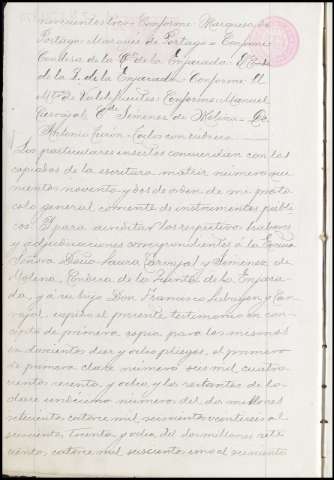 novecientos tres = Conforme = Marquesa de
Portago = Marqués de Portago = Conforme
Condesa de la Qta de la Enjarada = El Conde
de la Q. de la Enjarada = Conforme = El
M. de Valdefuentes = Conforme = Manuel
Carvajal Cde Jimenez de Molina = Ldo
Antonio Turón = Todos con rubrica
Los particulares insertos convienen con los
copiados de la escritura matriz numero qui
nientos noventa y dos de orden de mi proto
colo general corriente de instrumentos públi
cos. Y para acreditar los respectivos haberes
y adjudicaciones correspondientes á la
Señora Doña Laura Carvajal y Jimenez de
Molina, Condesa de la Quinta de la Enjara
da, y á su hijo Don Francisco y Car
vajal, expido el presente testimonio en con
cepto de primera copia para los mismos
en doscientos diez y ocho pliegos, el primero
de primera clase numero seis mil cuatro
cientos y ocho, y los restantes de la
clase undécima numeros del dos millones
setecientos catorce mil seiscientos veintiseis al
seiscientos treinta y ocho, del dos millones sete
cientos catorce mil seiscientos uno al seiscientos